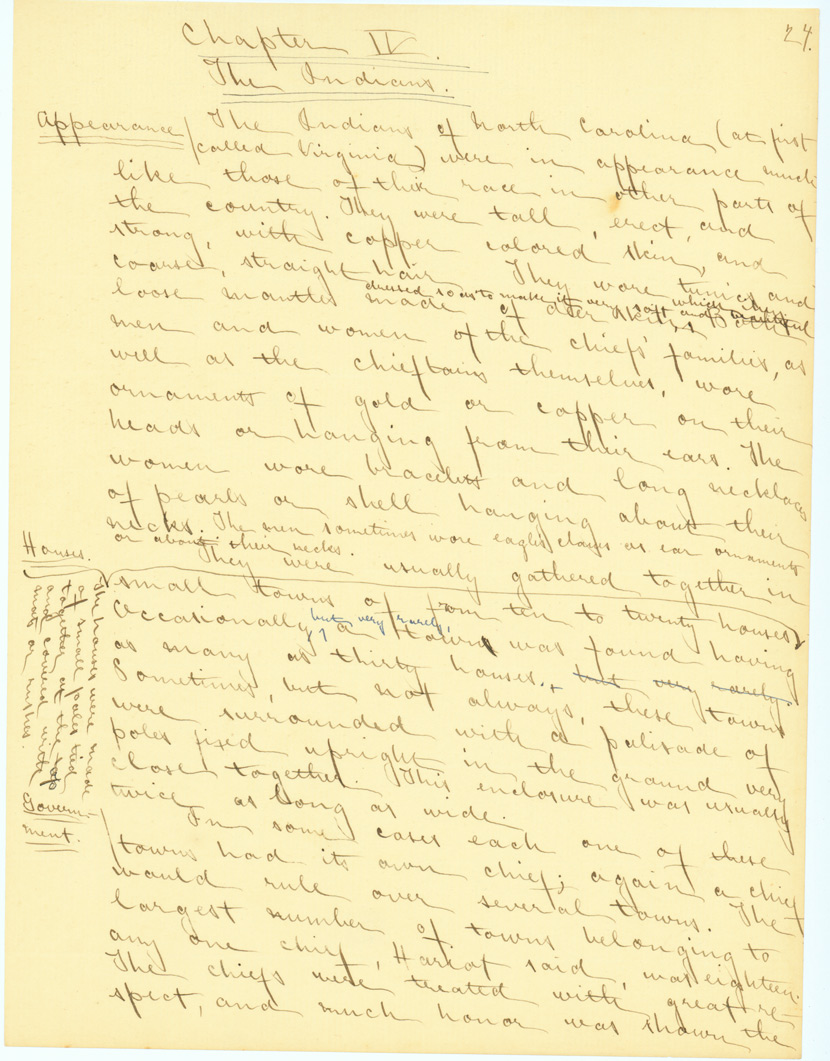 24.
Chapter IV.
The Indians.
Appearance
The Indians of North Carolina (at first
called Virginia) were in appearance much
like those of their race in other parts of
the country. They were tall, erect, and
strong, with copper colored skin, and
coarse, straight hair. They wore tunics and
dressed so as to make it very soft and
loose mantles made of deer skin, Both
men and women of the chiefs' families, as
well as the chieftains themselves, wore
ornaments of gold or copper on their
heads or hanging from their ears. The
women wore bracelets and long necklaces
of pearls or shell hanging about their
necks. The men sometimes wore eagles claws as ear ornaments
or about their necks.
Houses.
They were usually gathered together in
small towns of from ten to twenty houses
The houses were made
of small poles tied
together at the top
and covered with
mats or rushes.
but very rarely,
Occasionally a town was found having
as many as thirty houses. but very rarely.
Sometimes, but not always, these towns
were surrounded with a palisade of
poles fixed upright in the ground very
close together. This enclosure was usually
twice as long as wide.
Govern-
ment.
In some cases each one of these
towns had its own chief; again a chief
would rule over several towns. The
largest number of towns belonging to
any one chief, Hariot said, was eighteen.
The chiefs were treated with great re-
spect, and much honor was shown the